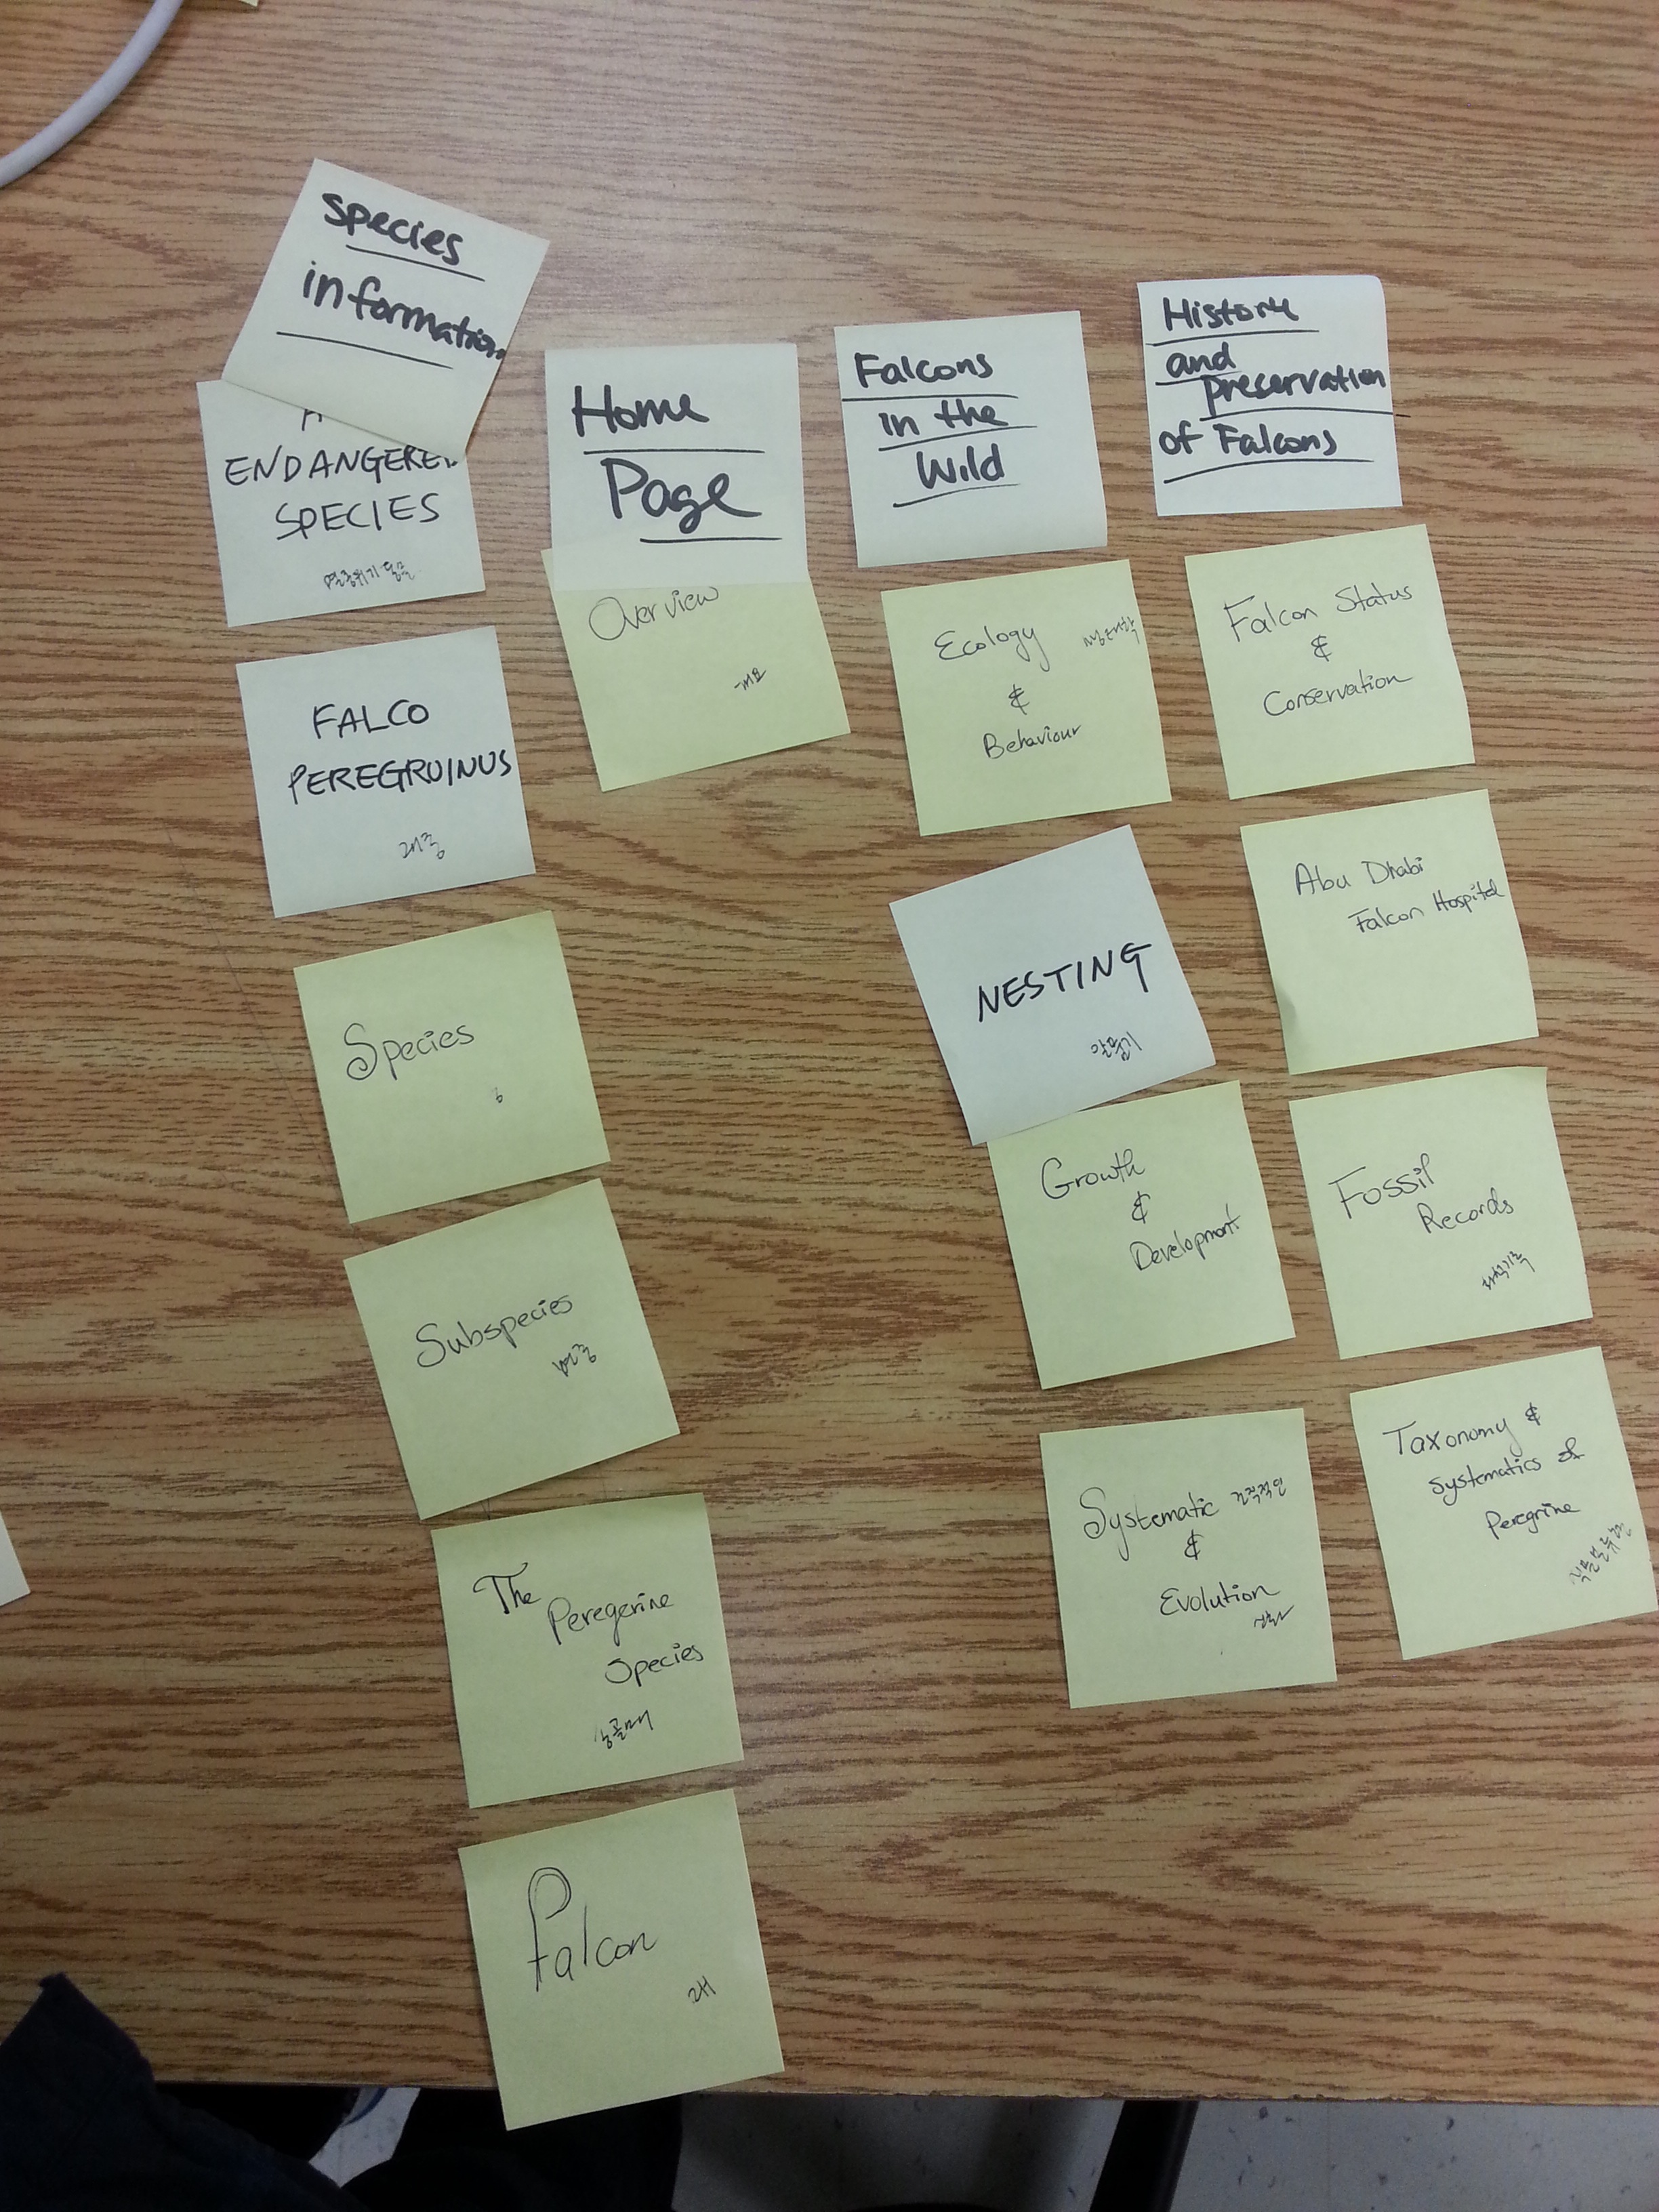 Species
information
ENDANGERED
SPECIES
멸종위기 동물
FALCO
PEREGRUINUS
Species
종
Subspecies
변종
The
Peregerine
Species
송골매
Falcon
매
Home
Page
Overview
개요
Falcons
in the
Wild
Ecology
생태학
&
Behaviour
NESTING
알품기
Growth
&
Development
Systematic
&
Evolution
History
and
preservation
of Falcons
Falcon Status
&
Conservation
Abu Dhabi
Falcon Hospital
Fossil
Records
화석기록
Taxonomy &
systematics of
Peregrine